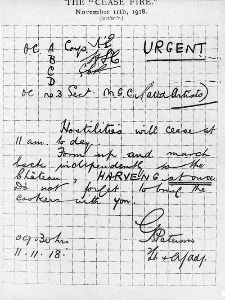 THE "CEASE FIRE."
November 11th, 1918.
O.C. A Coys.
B
C
D
URGENT
O.C. No. 3 Sect. M.G.C.
Hostilities will cease at
11 am. to day.
Form up and march
back independently to the
Château, HARVENG at once
Do not forget to bring the
cookers with you.
09.30 hrs
11.11.18.
G Paterson
Lt & A/Adj.